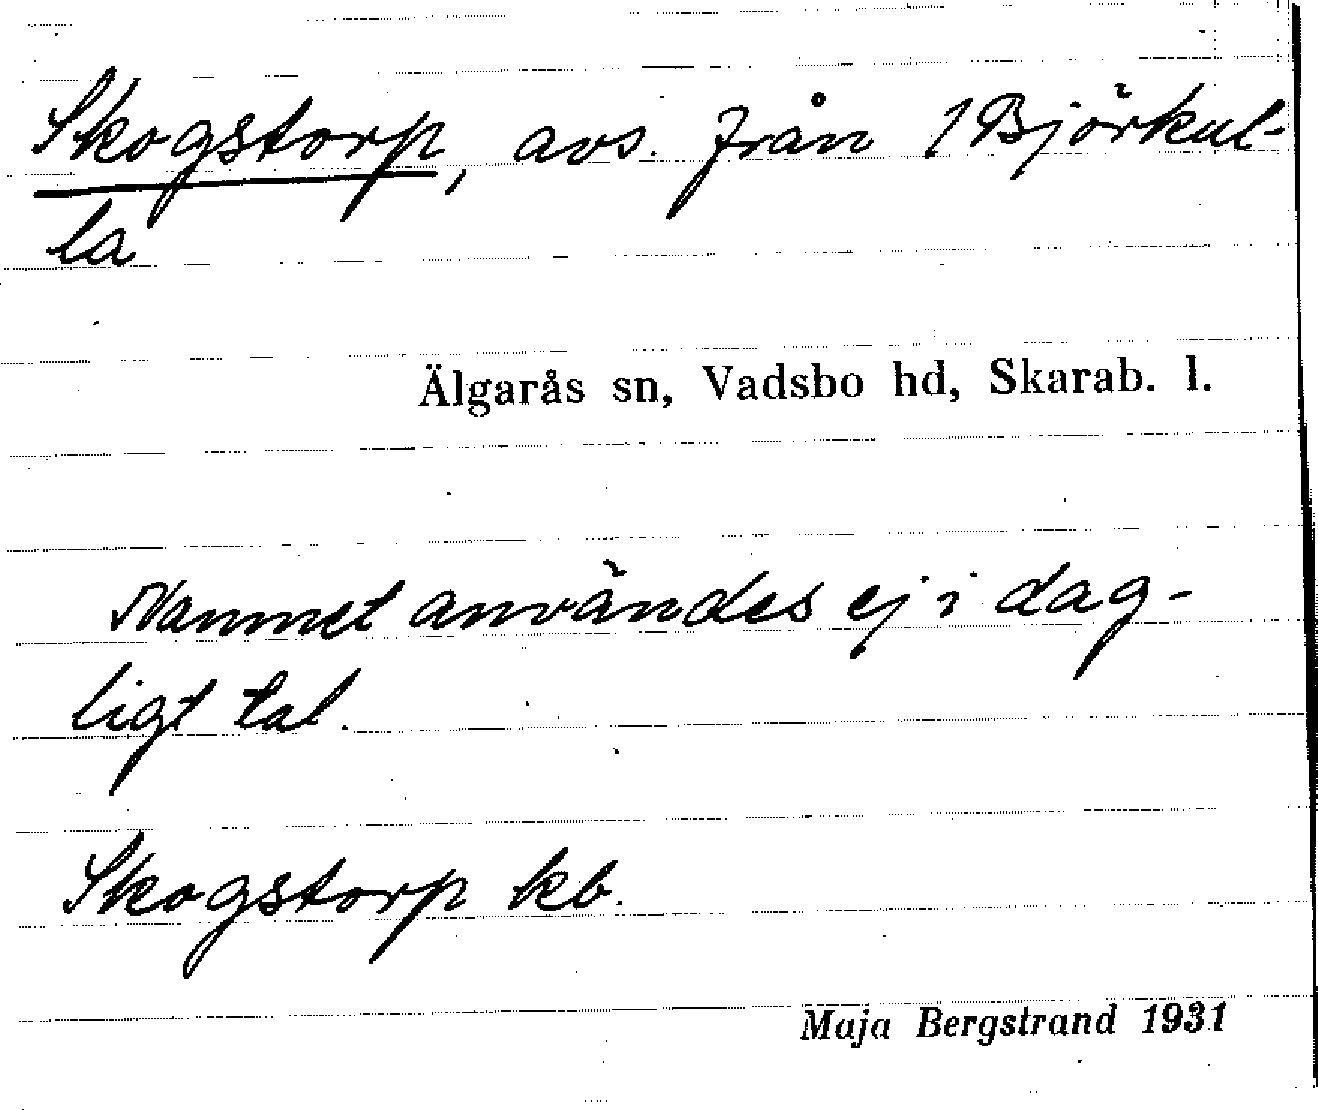 Skogstorp, avs. från 1 Björkul-
la
Älgarås sn, Vadsbo hd, Skarab. l.
Namnet användes ej i dag-
ligt tal.
Skogstorp kb.
Maja Bergstrand 1931